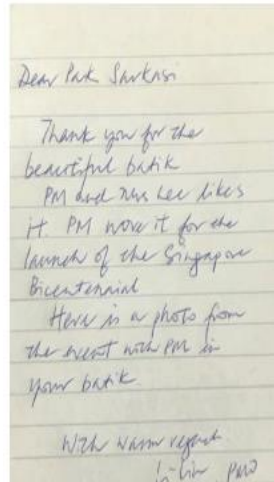 Dear Pak Sarkasi
Thank you for the
beautiful batik
PM and Mrs Lee likes
it. PM wore it for the
launch of the Singapore
Bicentennial
Here is a photo from
the event with PM in
your batik.
With warm regards
PMO